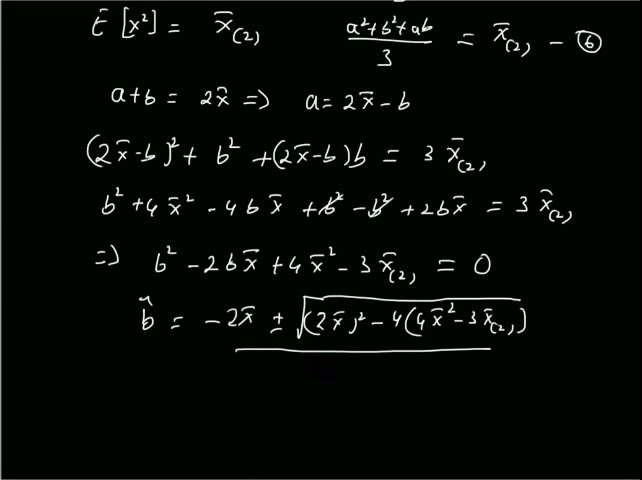 E [x²] = x̄₍₂₎   (a²+b²+ab)/3 = x̄₍₂₎ — ⑥
a+b = 2x̄ ⇒ a = 2x̄ - b
(2x̄-b)² + b² + (2x̄-b)b = 3 x̄₍₂₎
b² + 4x̄² - 4bx̄ + b² - b² + 2bx̄ = 3 x̄₍₂₎
⇒ b² - 2bx̄ + 4x̄² - 3x̄₍₂₎ = 0
b̂ = - 2x̄ ± √((2x̄)² - 4(4x̄² - 3x̄₍₂₎)